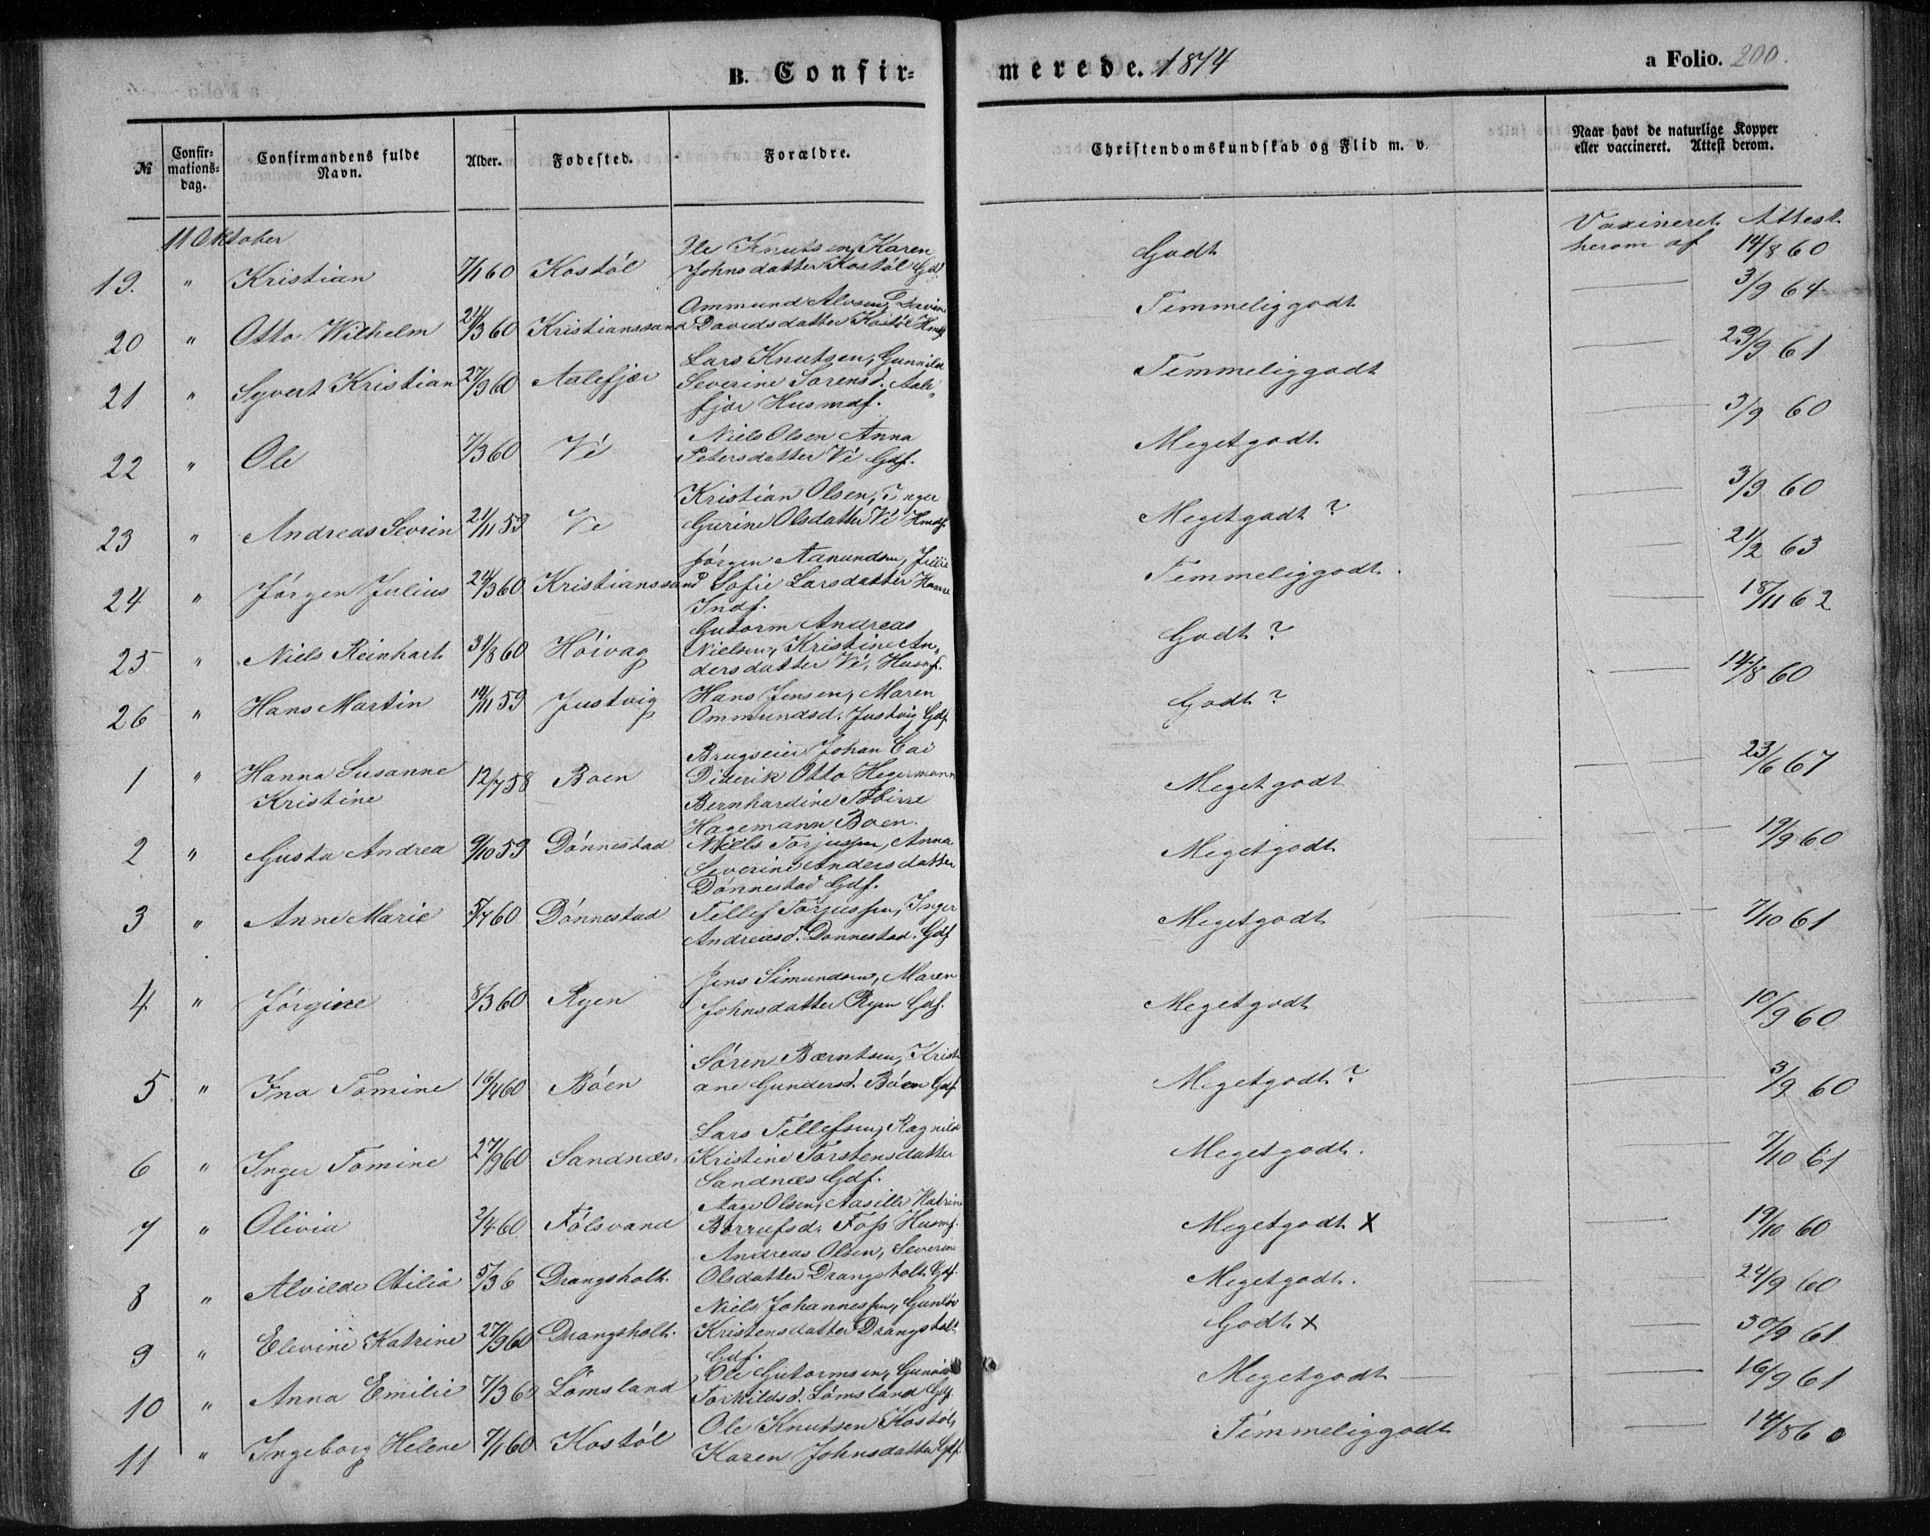 B. Confir-
merede. 1874
a Folio. 200.
№
Confir-
mations-
dag.
Confirmandens fulde
Navn.
Alder.
Fødested.
Forældre.
Christendomskundskab og Flid m. v.
Naar havt de naturlige Kopper
eller vaccineret. Attest derom.
11 Oktober
Vaxineret Attest
herom af
19. " Kristian 7/1 60 Kostøl Ole Knutsen, Karen
Johnsdatter Kostøl Gdf. Godt 14/8 60
20 " Otto Wilhelm 24/3 60 Kristianssand Ommund Alvsen,
Davidsdatter Kostøl Hmdf Temmeliggodt 3/9 64
21 " Syvert Kristian 27/9 60 Aalefjær Lars Knutsen, Gunnild
Severine Sørensd. Aale
fjær Husmdf. Temmeliggodt 29/9 61
22 " Ole 7/3 60 Vé Niels Olsen Anna
Petersdatter Vé Gdf. Megetgodt 3/9 60
23 " Andreas Sevrin 21/11 59 Ve Kristian Olsen, Inger
Gurine Olsdatter Vé Hmdf. Megetgodt ? 3/9 60
24 " Jørgen Julius 24/3 60 Kristianssand Jørgen Aanundsen, Jillie
Sofie Larsdatter Hanne
Indf. Temmeliggodt. 21/2 63
25 " Niels Reinhart 31/8 60 Høivag Gutorm Andreas
Nielsen, Kristine An-
dersdatter Vé, Husmf. Godt ? 18/11 62
26 " Hans Martin 14/11 59 Justvig Hans Jensen, Maren
Ommundsd. Justvig Gdf. Godt ? 14/8 60
1 " Hanna Susanne
Kristine 12/7 58 Boen Brugseier Johan Cai
Diderik Otto Hegermann
Bernhardine
Hagemann Boen. Megetgodt 23/6 67
2 " Gusta Andrea 9/10 59 Dønnestad Niels Torjussen, Anna
Severine Andersdatter
Dønnestad Gdf. Megetgodt 19/9 60
3 " Anne Marie 5/7 60 Dønnestad Tellef Torjussen, Inger
Andreasd. Dønnestad. Gdf Megetgodt 7/10 61
4 " Jørgine 8/3 60 Ryen Jens Simundsen, Maren
Johnsdatter Ryen Gdf. Megetgodt 10/9 60
5 " Ina Tomine 16/4 60 Bøen Søren Bærntsen, Kristi
ane Gundersd. Bøen Gdf. Megetgodt ? 3/9 60
6 " Inger Tomine 27/9 60 Sandnæs. Lars Tellefsen, Ragnild
Kristine Torstensdatter
Sandnæs Gdf. Megetgodt. 7/10 61
7 " Olivia 2/4 60 Følsvand Aage Olsen, Aasille Katrine
Berrufsd. Foss Husmf. Megetgodt x 19/10 60
8 " Alvilde Otilia 5/3 6 Drangsholt. Andreas Olsen, Severine
Olsdatter Drangsholt Gdf. Megetgodt. 24/9 60
9 " Elevine Katrine 27/9 60 Drangsholt. Niels Johannessen, Gunløv
Kristensdatter Drangsholt
Gdf. Godt x 30/9 61
10 " Anna Emilie 7/3 6 Lømsland Ole Gutormsen, Gunnild
Torkildsd. Lømsland Gdf. Megetgodt 16/9 61
11 " Ingeborg Helene 7/1 60 Kostøl Ole Knutsen Kostøl,
Karen Johnsdatter Gdf. Temmeliggodt 14/8 60